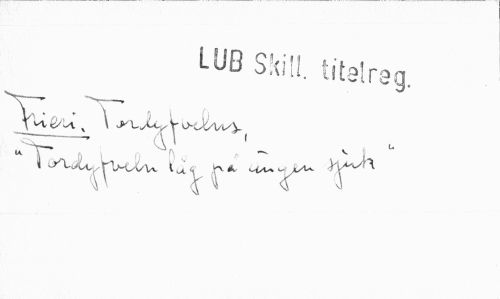 LUB Skill. titelreg.
Frieri, Tordyfvelns,
"Tordyfveln låg på ängen sjuk"